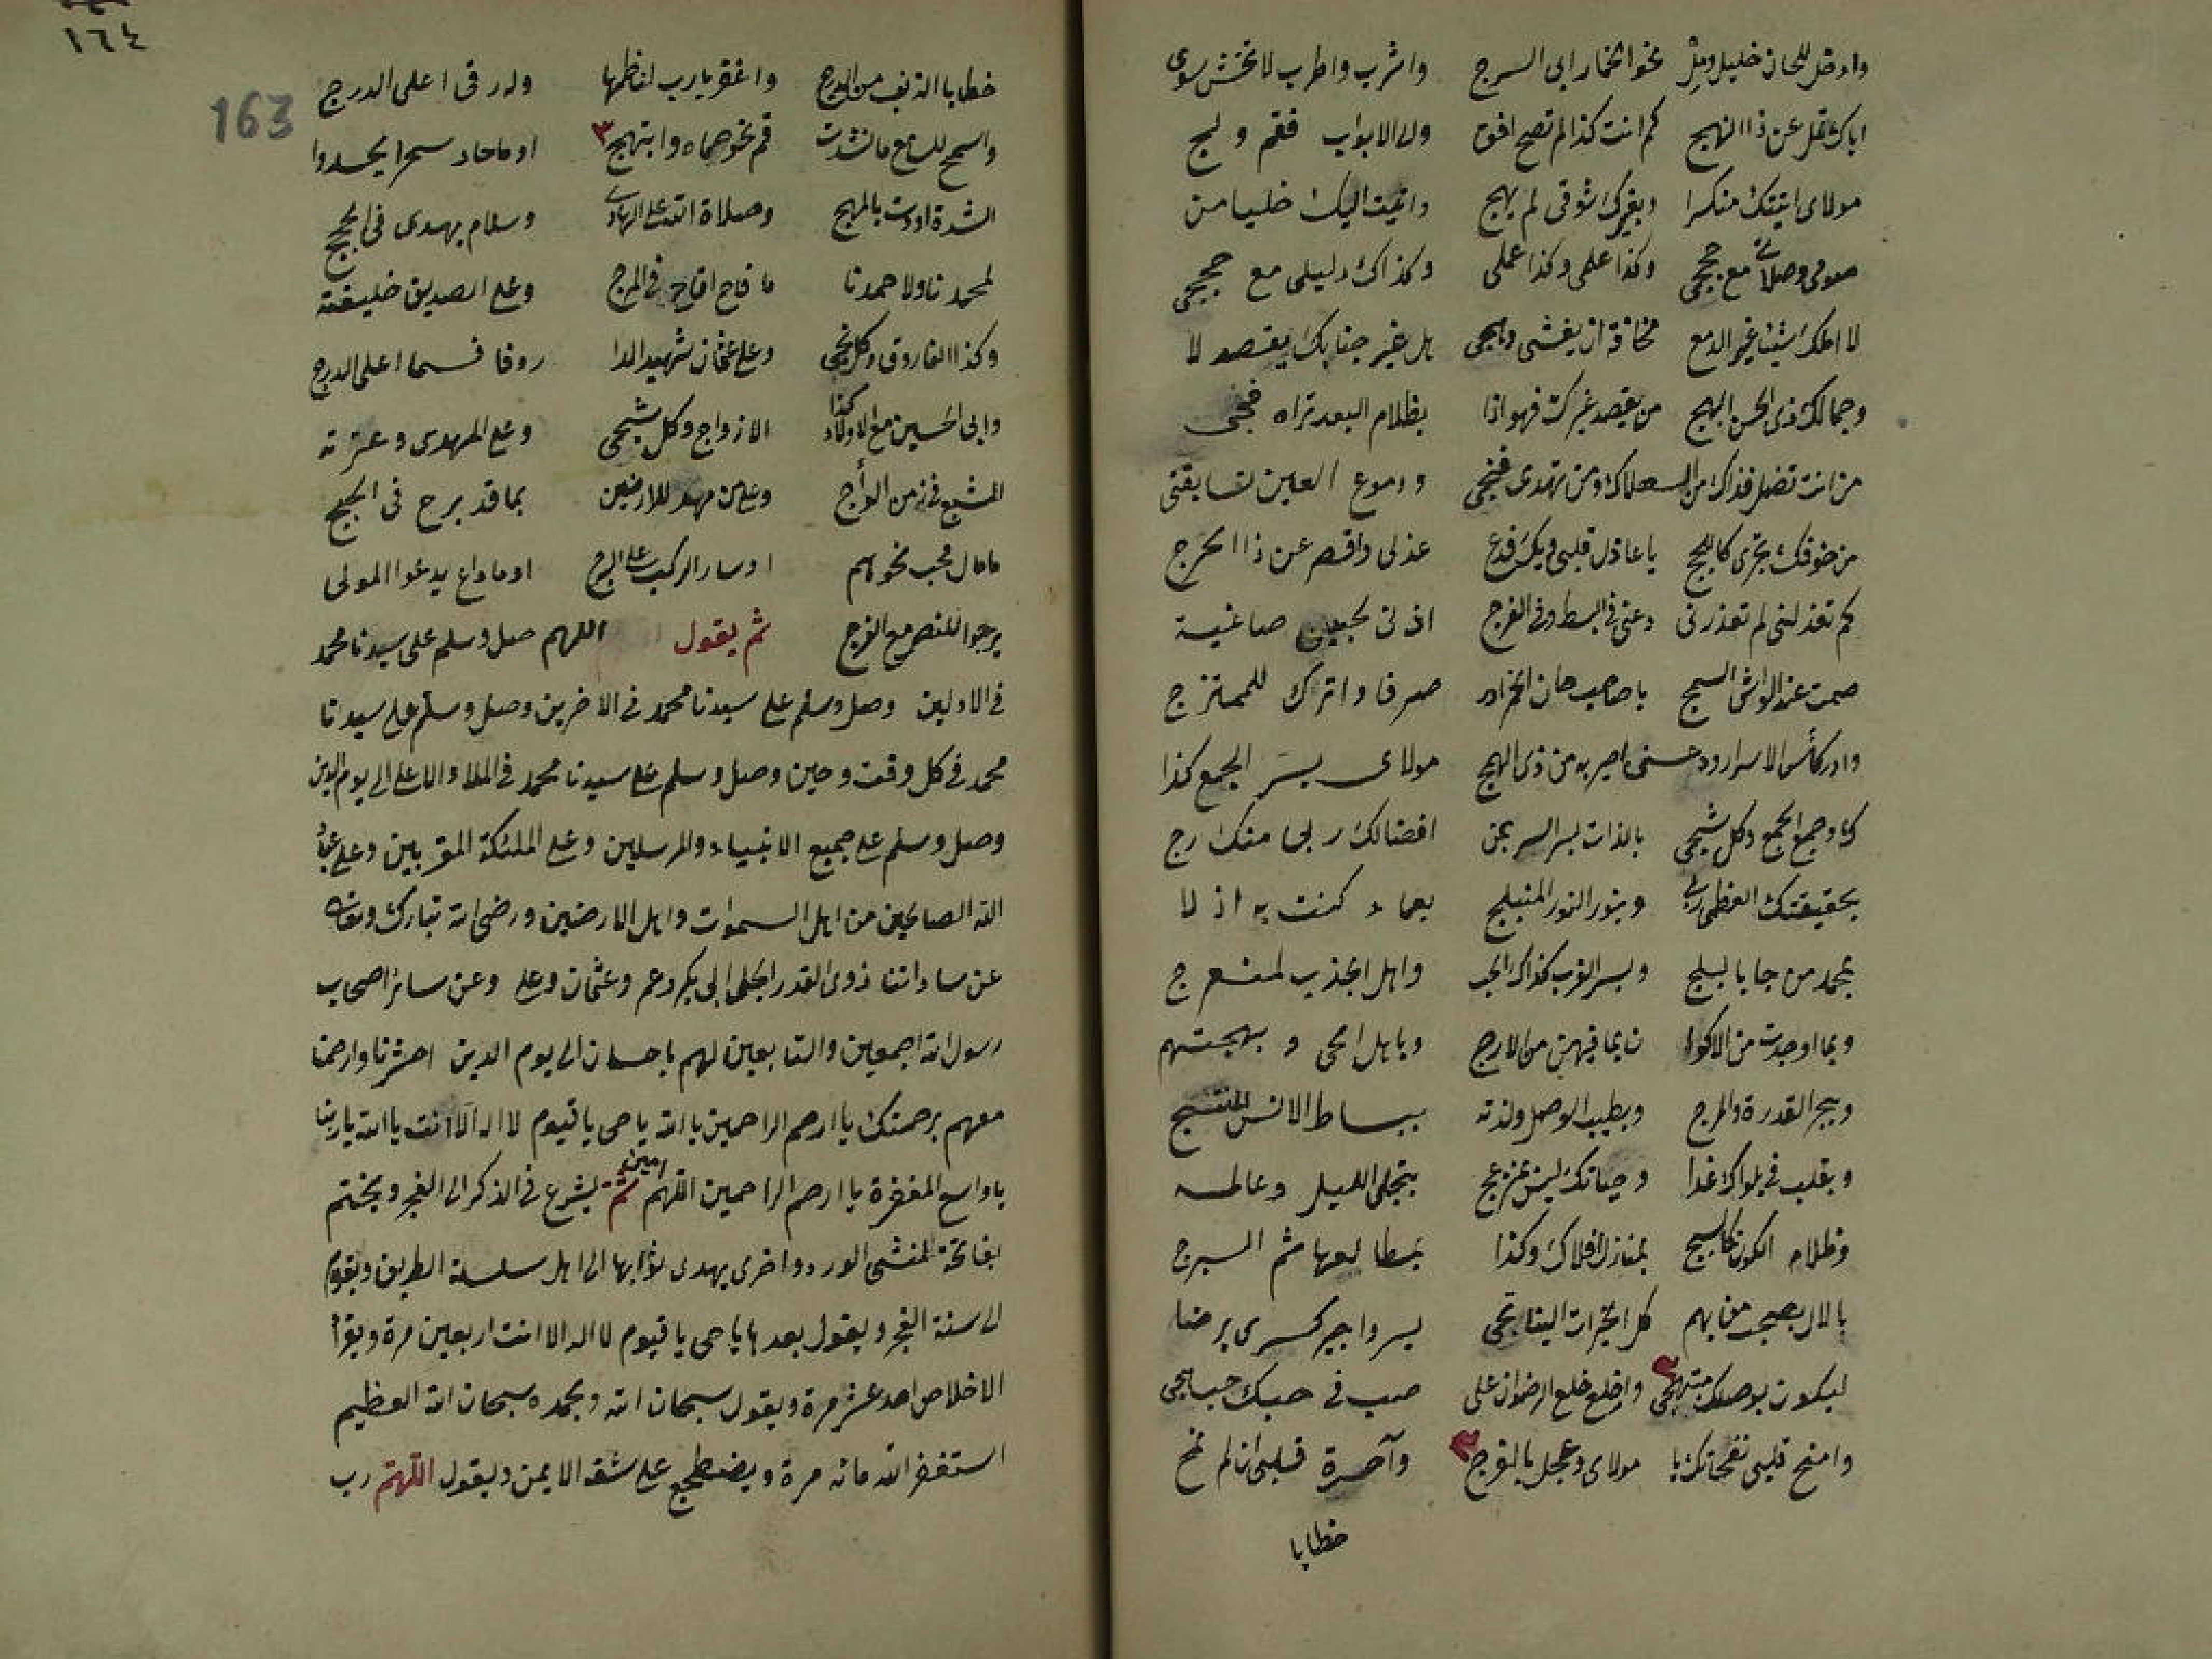 وادخل للحان خليل ومل نحو الخمار ابى السرج واشرب واطرب لا تخش سوى
اياك تمل عن ذا النهج كم انت كذا لم تصح افق ولى الابواب فقم ولج
مولاى اتيتك منكسرا وبغيرك شوقى لم يهج واتيت اليك خليا من
صومى وصلاتى مع حججى وكذا علمى وكذا عملى وكذاك دليلى مع حججى
لا املك شيئا غير الدمع مخافة ان يغشى وهجى هل غير جنابك يقصد لا
وجمالك ذى الحسن البهج من يقصد غيرك فهو اذا بظلام البعد تراه فجى
من انت تضل فذاك من الهلاك ومن تهدى فنجى ودموع العين تسابقنى
من خوفك تجرى كاللجج يا عاذل قلبى ويك فدع عذلى واقصر عن ذا الحرج
كم تعذلنى لم تعذرنى دعنى فى البسط وفى الفرج اذنى لحبيبى صاغية
صمت عند الواشى السمج يا صاحب حان الخمر ادر صرفا واترك للممتزج
وادر كأس الاسرار ودعنى اصير به من ذى الهج مولاى بسر الجمع كذا
كا وجمع الجمع وكل شجى بالذات بسر السر بمن افضالك ربى منك رج
بحقيقتك العظمى ربى وبنور النور المنبلج بعماء كنت به ازلا
بمحمد من جا بالبلج وبسر القرب كذاك الحب واهل الجذب لمنعرج
وبما اوجدت من الاكوا ن بما فيهن من الارج وباهل الحى وبهجتهم
وببحر القدرة والمرج وبطيب الوصل ولذته ببساط الانس المنتسج
وبقلب فى بلواك غدا وحياتك ليس بمنزعج بتجلى الليل وعالمه
وظلام الكون كالسبج بمنازل افلاك وكذا بمطالعها ثم البرج
بالال بصحب من بهم كل الخيرات الينا تجى يسر واجبر كسرى برضا
ليكون بوصلك مبتهجى ٣ واخلع خلع الرضوان على صب فى حبك حبا هجى
وامنح قلبى نفحاتك يا مولاى وعجل بالفرج ٣ وآحسرة قلبى ان لم تمح
خطايا
١٦٤
163
خطايا الذنب من الدرج واغفر يا رب لناظمها وله رقى اعلى الدرج
واسمح للسامع ما نشدت قم نحو حماه وابتهج ٣ او ما حاد سحرا يحدوا
الشدة اودت بالمهج وصلاة الله على الهادى وسلام يهدى فى الحجج
لمحمدنا ولاحمدنا ما فاح اقاح فى المرج وعلى الصديق خليفته
وكذا الفاروق وكل نجى وعلى عثمان شهيد الدا ر وفا فسما اعلى الدرج
وابى الحسنين مع الاولاد كذا الازواج وكل شجى وعلى المهدى وعترته
المشبع فى زمن الوأج وعلى من مهد للارضين بما قد برح فى الحجج
ما مال محب نحوهم او سار الركب على السرج او ما داع يدعوا المولى
يرجوا للنصر مع الفرج ثم يقول اللهم صل وسلم على سيدنا محمد
فى الاولين وصل وسلم على سيدنا محمد فى الاخرين وصل وسلم على سيدنا
محمد فى كل وقت وحين وصل وسلم على سيدنا محمد فى الملاء الاعلى الى يوم الدين
وصل وسلم على جميع الانبياء والمرسلين وعلى الملئكة المقربين وعلى عباد
الله الصالحين من اهل السموات واهل الارضين ورضى الله تبارك وتعالى
عن ساداتنا ذوى القدر الجلى ابى بكر وعمر وعثمان وعلى وعن سائر اصحاب
رسول الله اجمعين والتابعين لهم باحسان الى يوم الدين احشرنا وارحمنا
معهم برحمتك يا ارحم الراحمين يا الله يا حى يا قيوم لا اله الا انت يا الله يا ربنا
يا واسع المغفرة يا ارحم الراحمين اللهم امين ثم يشرع فى الذكر الى الفجر ويختم
بفاتحة لمنشى الورد واخرى يهدى ثوابها الى اهل سلسلة الطريق ويقوم
الى سنة الفجر ويقول بعدها يا حى يا قيوم لا اله الا انت اربعين مرة ويقرأ
الاخلاص احد عشر مرة ويقول سبحان الله وبحمده سبحان الله العظيم
استغفر الله مائة مرة ويضطجع على شقه الايمن ويقول اللهم رب